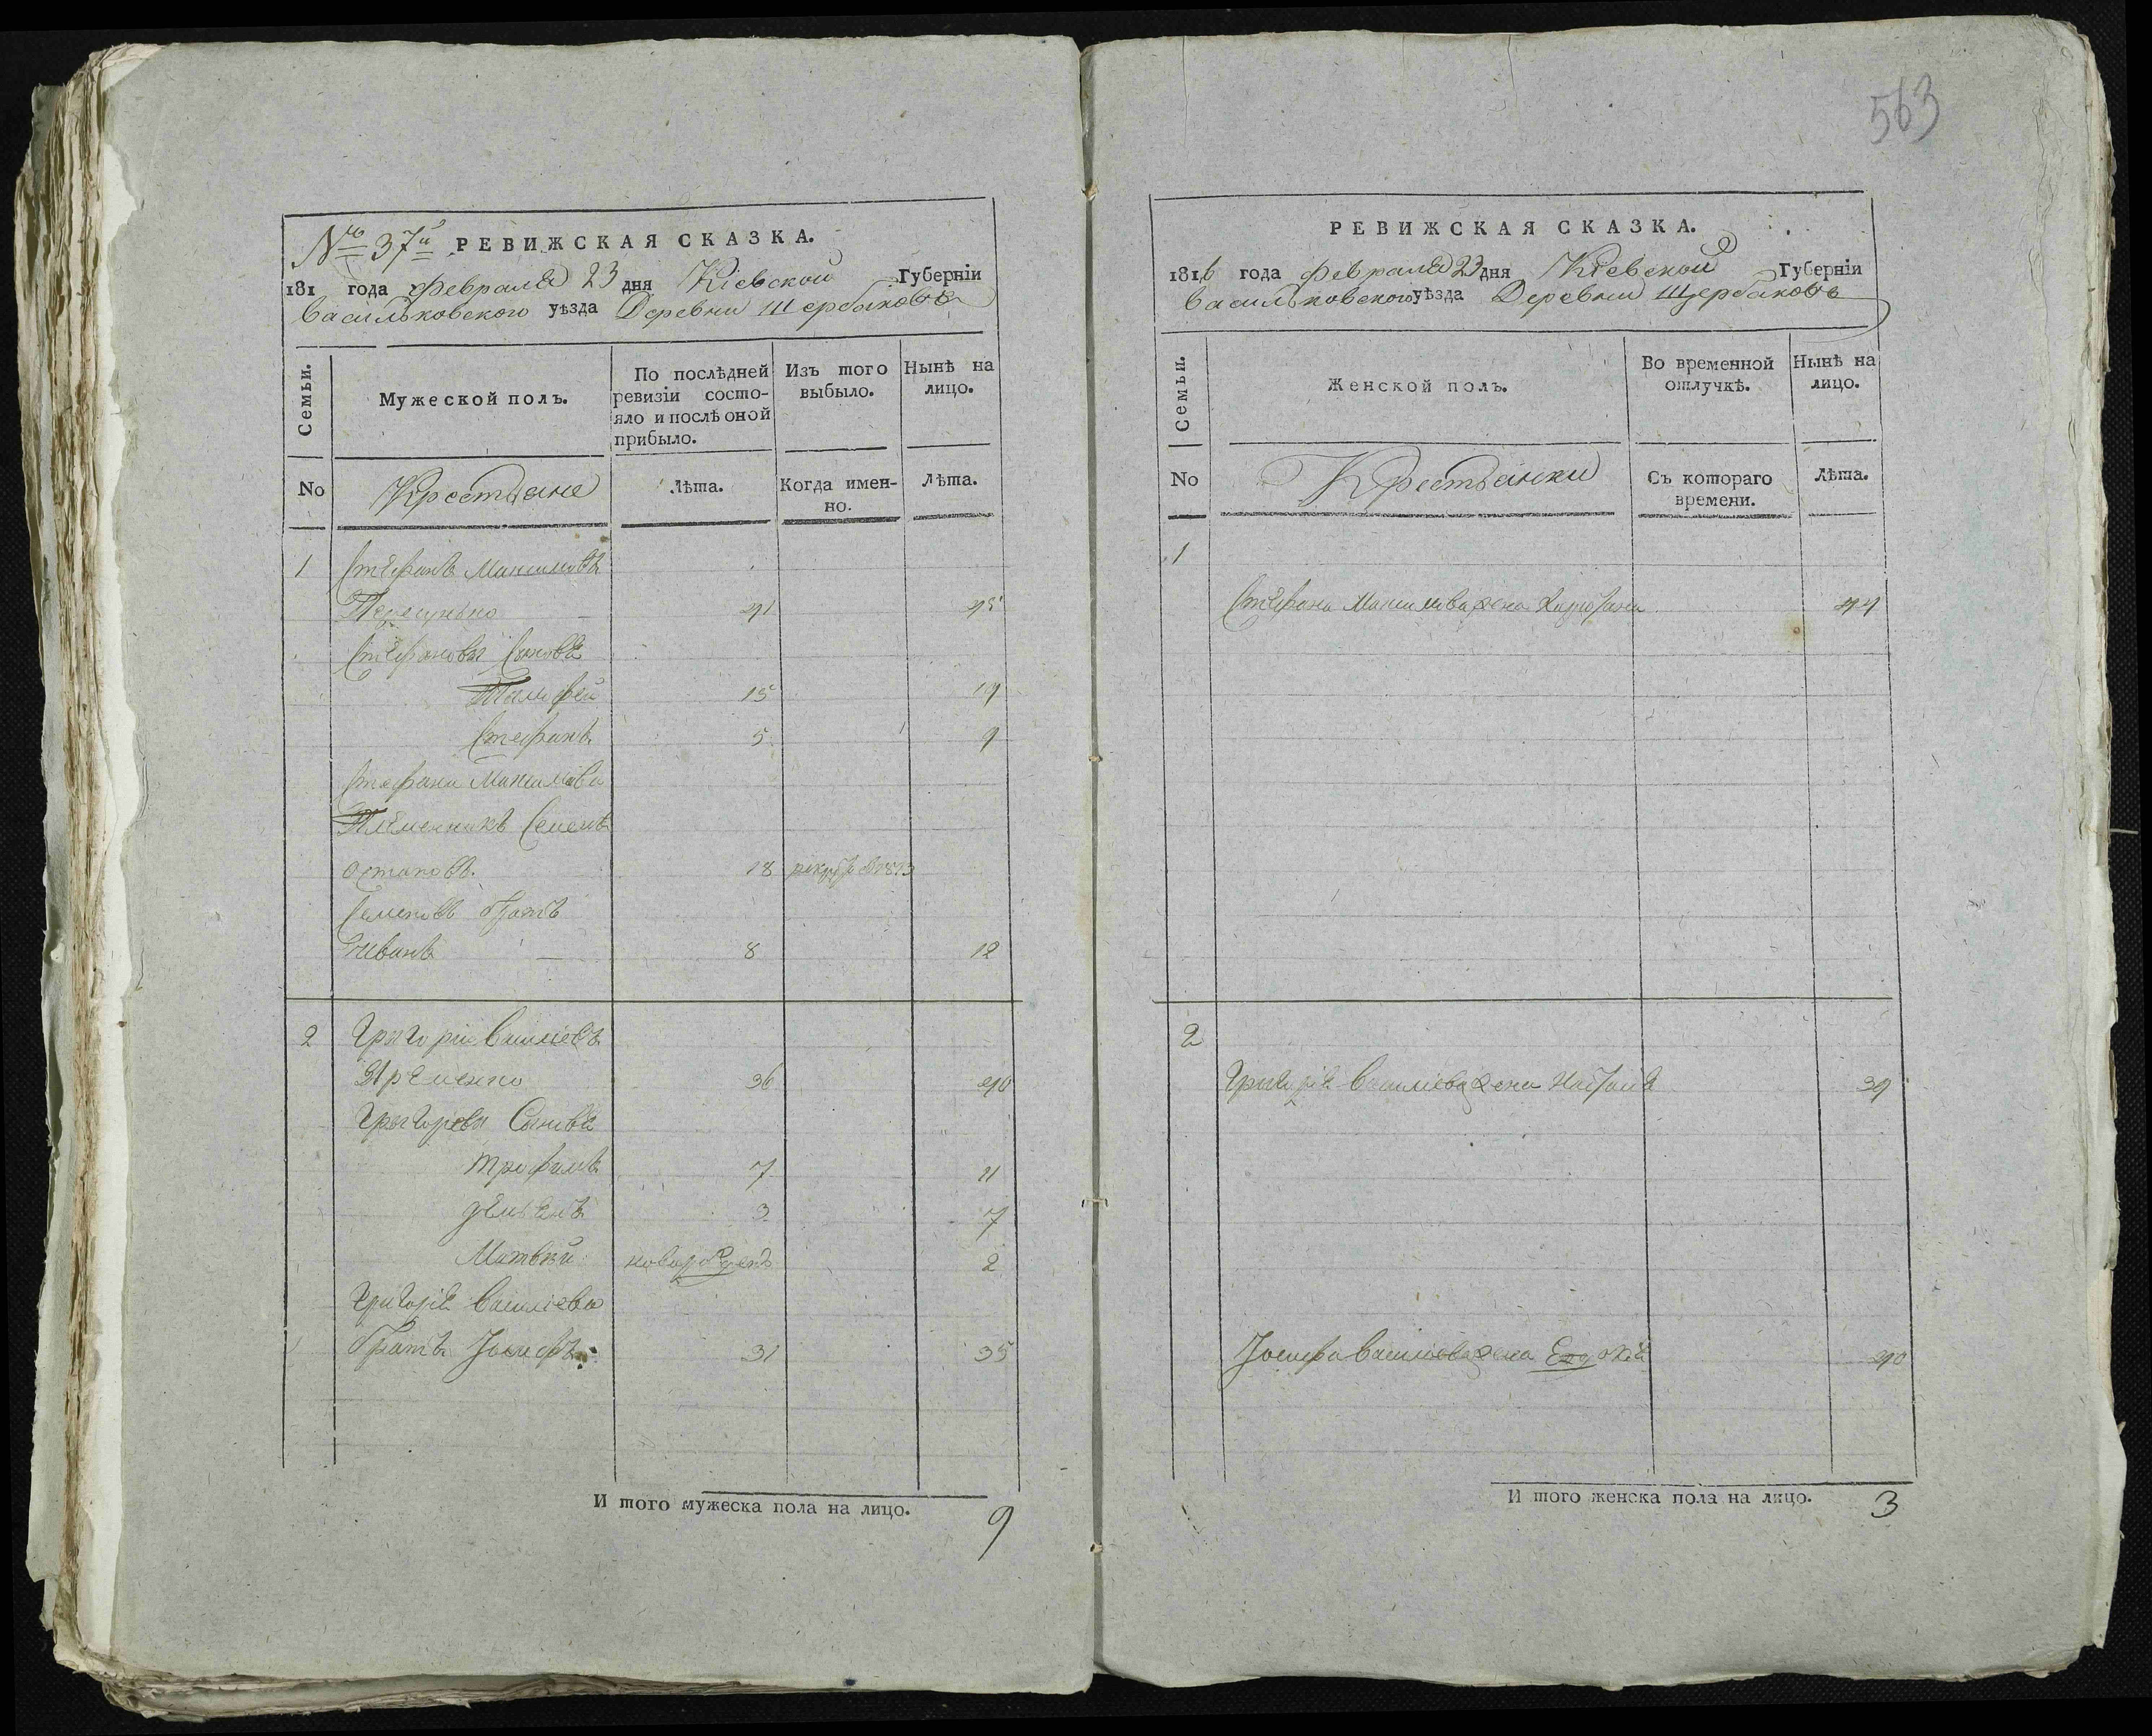 563
№ 37й РЕВИЖСКАЯ СКАЗКА.
181 года Февраля 23 дня Кіевской Губерніи
Васильковского уѣзда Деревни Щербаковъ
Семьи.
Мужеской полъ.
По послѣдней ревизіи состо-
яло и послѣ оной
прибыло.
Изъ того выбыло.
Нынѣ на лицо.
No
Крестьяне
Лѣта.
Когда имен-
но.
Лѣта.
1 Стефанъ Максимовъ
41 45
Стефановы Сыновья
15 19
Стефанъ 5 9
Стефана Максимова
Племенникъ Семенъ
Остаповъ. 18 1813
Семеновъ братъ
Иванъ 8 12
2 Григорій Василіевъ
Яременко 36 40
Григоріевы Сыновья
Трофимъ 7 11
Демьянъ 3 7
Матвѣй новорожденъ 2
Григорія Василіева
братъ Іосифъ 31 35
И того мужеска пола на лицо. 9
РЕВИЖСКАЯ СКАЗКА.
1816 года Февраля 23 дня Кіевской Губерніи
Васильковского уѣзда Деревни Щербаковъ
Семьи.
Женской полъ.
Во временной отлучкѣ.
Нынѣ на лицо.
No
Крестьянки
Съ котораго времени.
Лѣта.
1
Стефана Максимова жена 44
2
Григорія Василіева жена Настасія 39
Іосифа Василіева жена Евдокія 40
И того женска пола на лицо. 3